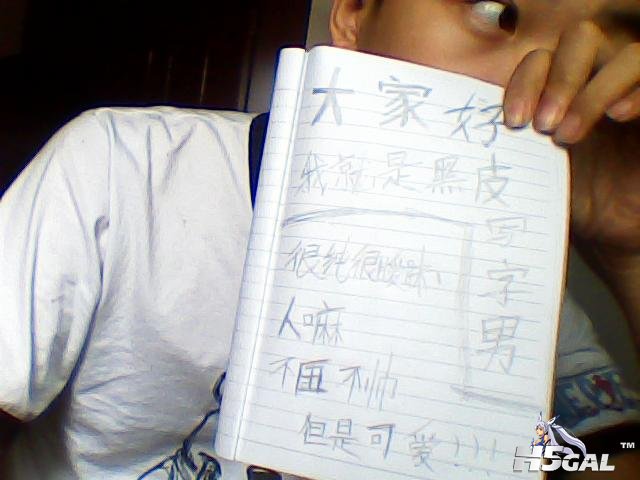 大家好
我就是黑皮写字男
很纯很暧昧
人嘛
不丑不帅
但是可爱!!!
H5GAL™